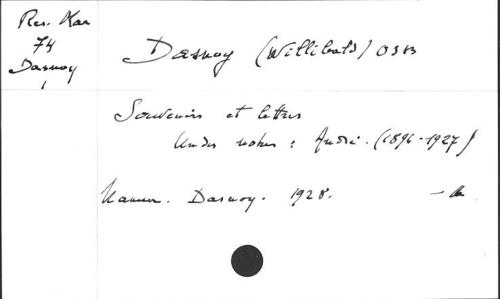 Res. Kar
74
Dasnoy
1
Dasnoy (Willibald) OSB
Souvenirs et lettres
Under noter : André. (1896-1927)
Namur. Dasnoy. 1928.